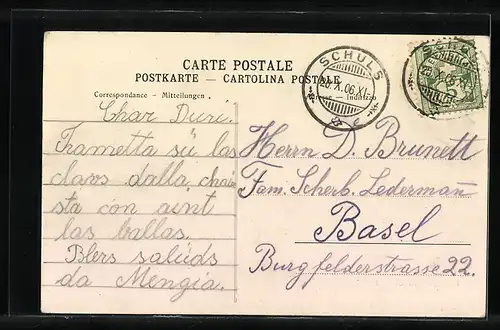 CARTE POSTALE
POSTKARTE — CARTOLINA POSTALE
Correspondance - Mitteilungen
Adresse - Indirizzo
SCHULS
20.X.06.XI
5
Char Duri.
Trametta sü las
clavs dalla chai
sta con aint
las ballas.
Blers salüds
da Mengia.
Herrn D. Brunett
Fam. Scherb. Lederman
Basel
Burgfelderstrasse 22.